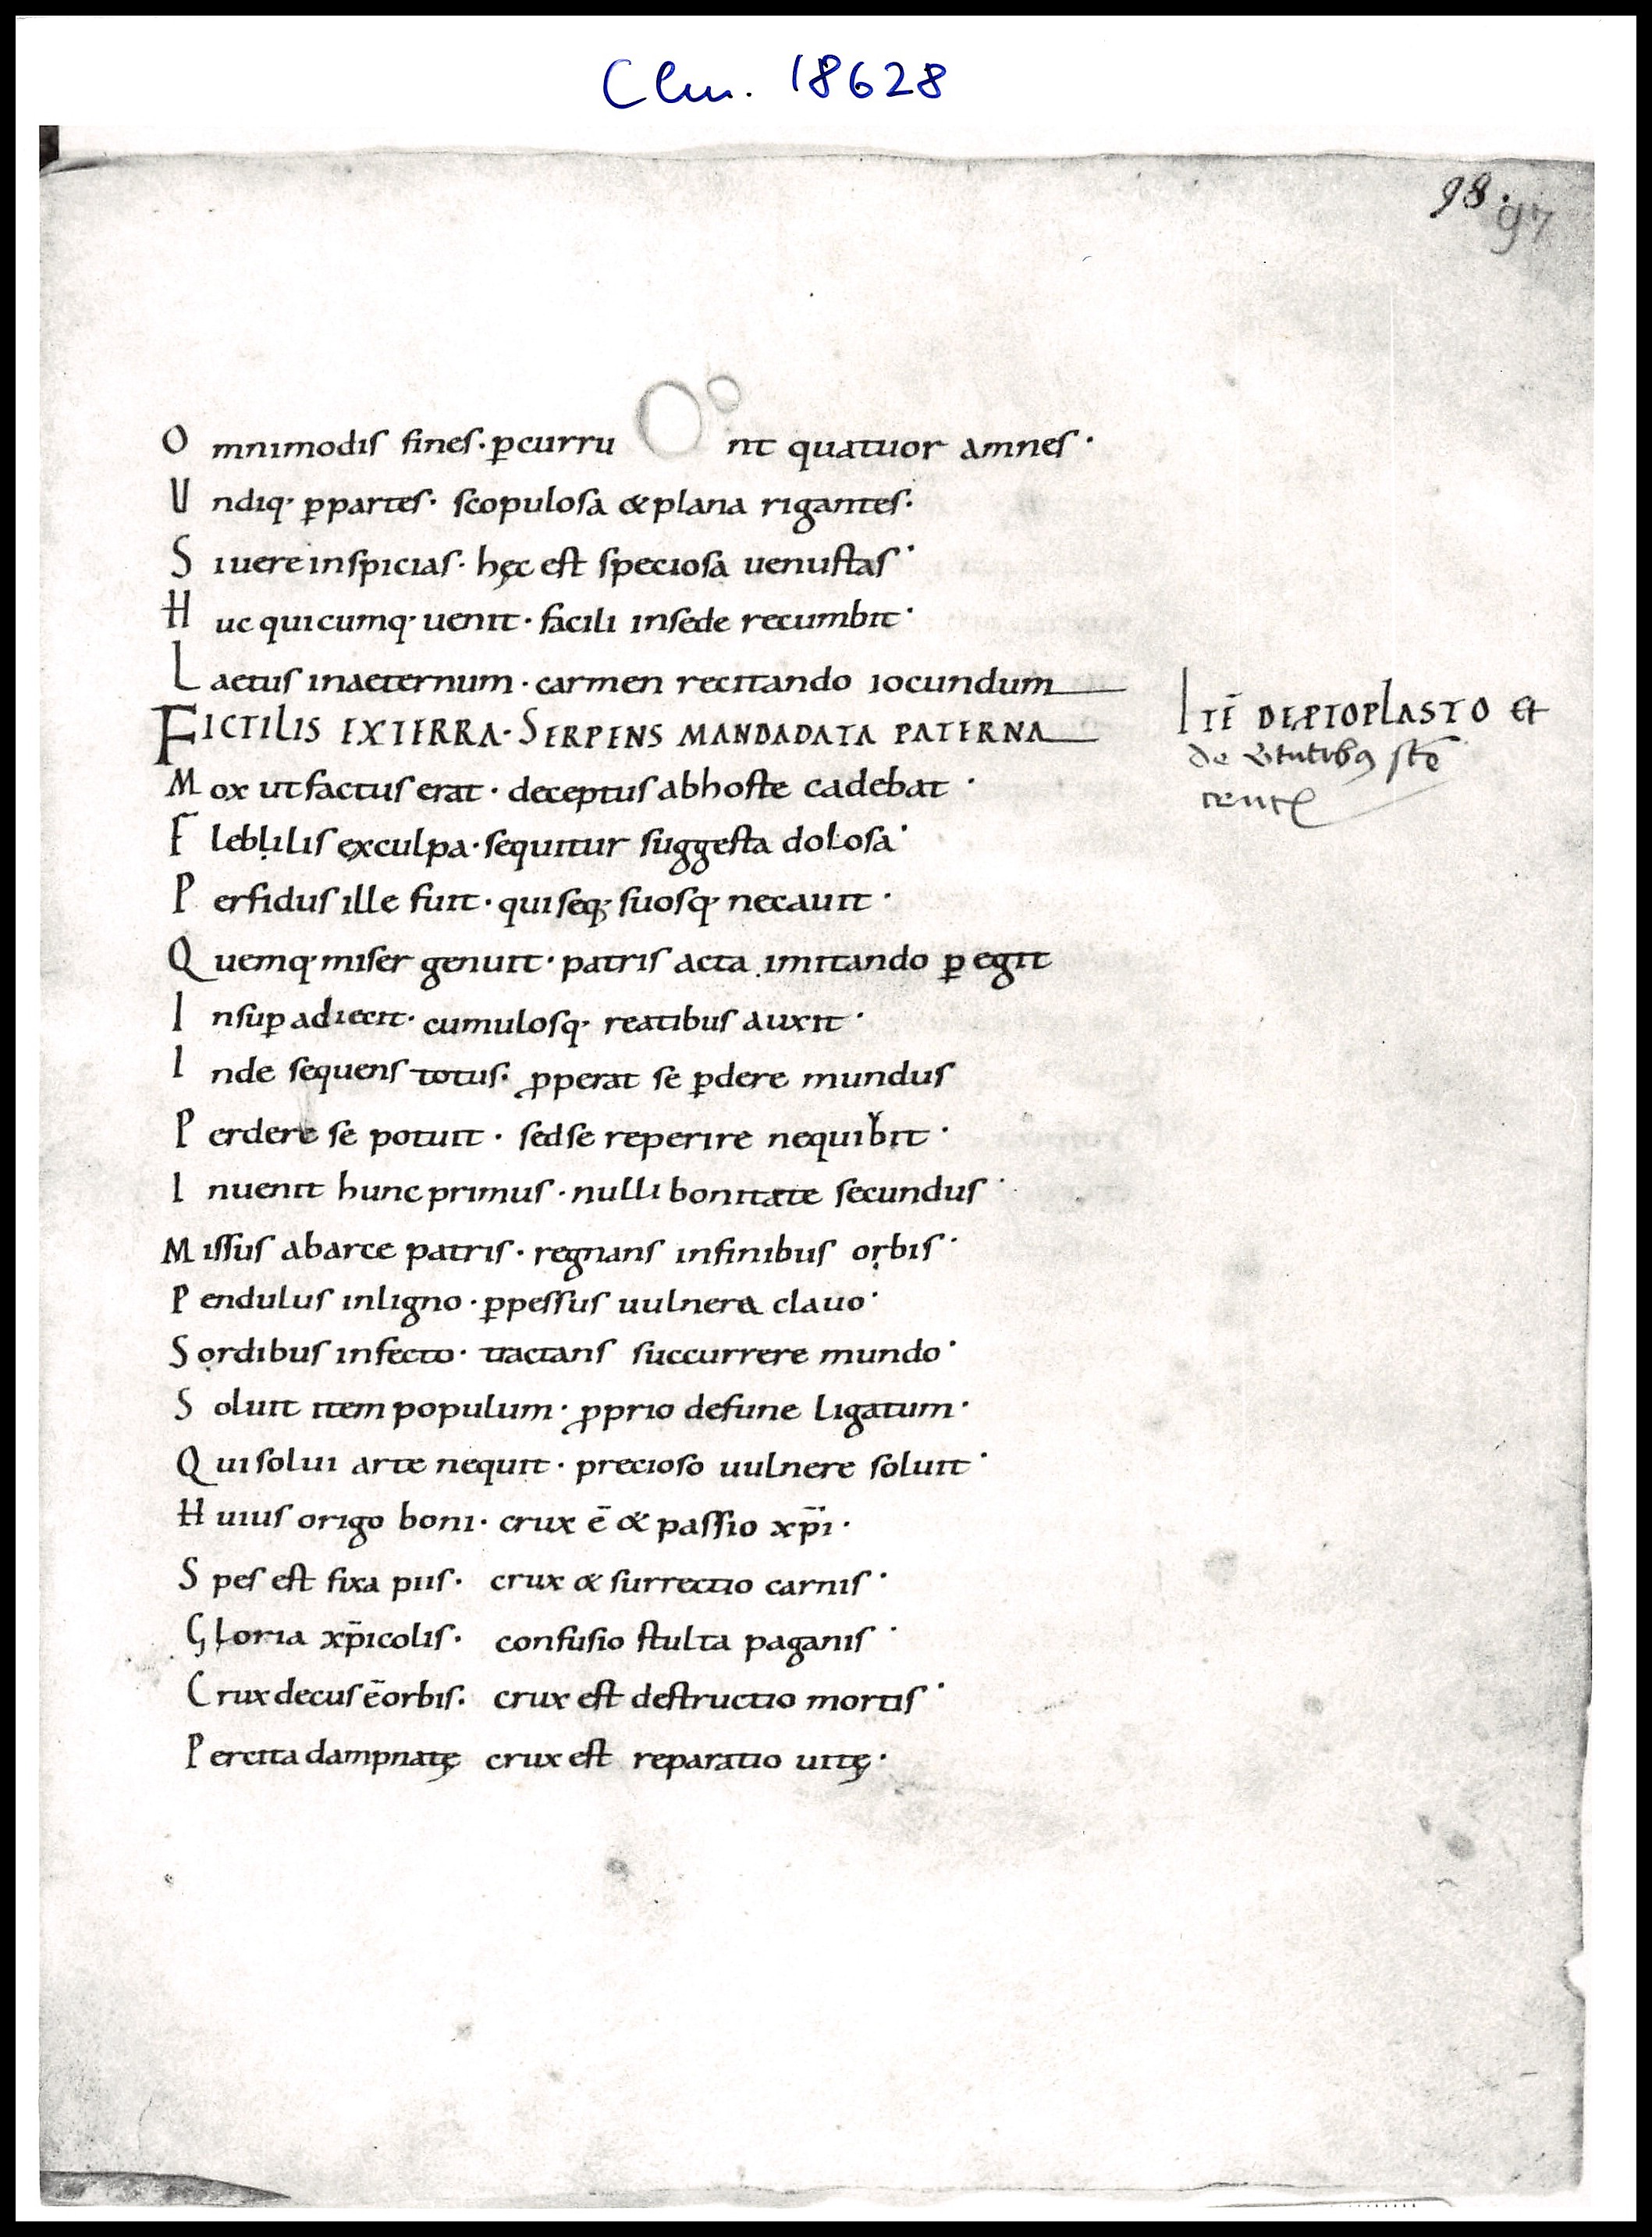 Clm. 18628
98. 97
O mnimodis fines · ꝑcurru nt quatuor amnes ·
U ndiq· ꝑpartes · scopulosa & plana rigantes ·
S iuere inspicias · hęc est speciosa uenustas ·
H uc quicumq· uenit · facili insede recumbit ·
L aetus inaeternum · carmen recitando iocundum
FICTILIS EXTERRA · SERPENS MANDADATA PATERNA
ITĒ DEPTOPLASTO ET
de
M ox ut factus erat · deceptus abhoste cadebat ·
F lebḷilis exculpa · sequitur suggesta dolosa ·
P erfidus ille fuit · qui seq; suosq· necauit ·
Q uemq· miser genuit · patris acta imitando ꝑegit
I nsuꝑ adiecit · cumulosq· reatibus auxit ·
I nde sequens totus · ꝓperat se ꝑdere mundus
P erdere se potuit · sedse reperire nequibit ·
I nuenit hunc primus · nulli bonitate secundus ·
M issus abarce patris · regnans infinibus orbis ·
P endulus inligno · ꝑpessus uulnera clauo ·
S ordibus infecto · tractans succurrere mundo ·
S oluit item populum · ꝓprio defune ligatum ·
Q ui solui arte nequit · precioso uulnere soluit ·
H uius origo boni · crux ē & passio xp̄i ·
S pes est fixa piis · crux & surrectio carnis ·
G loria xp̄icolis · confusio stulta paganis ·
C rux decus ē orbis · crux est destructio mortis ·
P ercita dampnatę crux est reparatio uitę ·